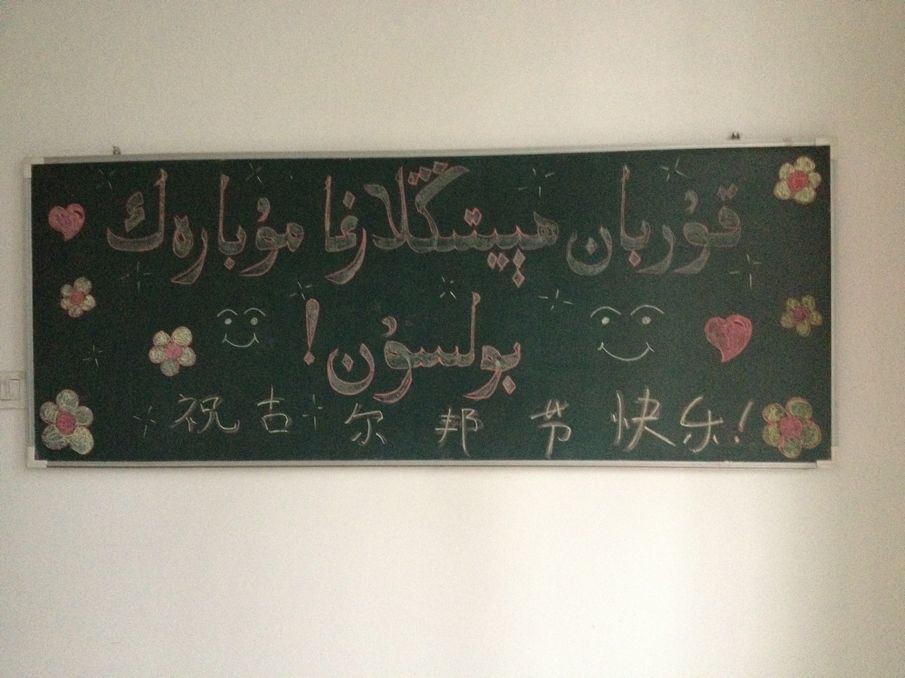 قۇربان ھېيتىڭلارغا مۇبارەك
بولسۇن!
祝古尔邦节快乐!